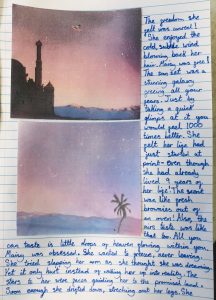 The freedom she
felt was unreal!
She enjoyed the
cold, subtle wind
blowing back her
hair. Maisy was free!
The sun set was a
staring galaxy,
freeing all your
fears. Just by
taking a quick
glimpse at it you
would feel 1000
times better. She
felt her life had
just started at
point - Even though
she had already
lived 9 years of
her life! The scent
was like fresh
brownies out of
an oven! Also, the
airs taste was like
that too. All you
can taste is little drops of heaven flowing within you.
Maisy was obsessed. She wanted to forever, never leaving.
She tried slapping her arm as she thought she was dreaming.
Yet it only hurt instead of waking her up into reality. The
stars to her were peices guiding her to the promised land.
Soon enough she drifted down, stretching out her legs. She